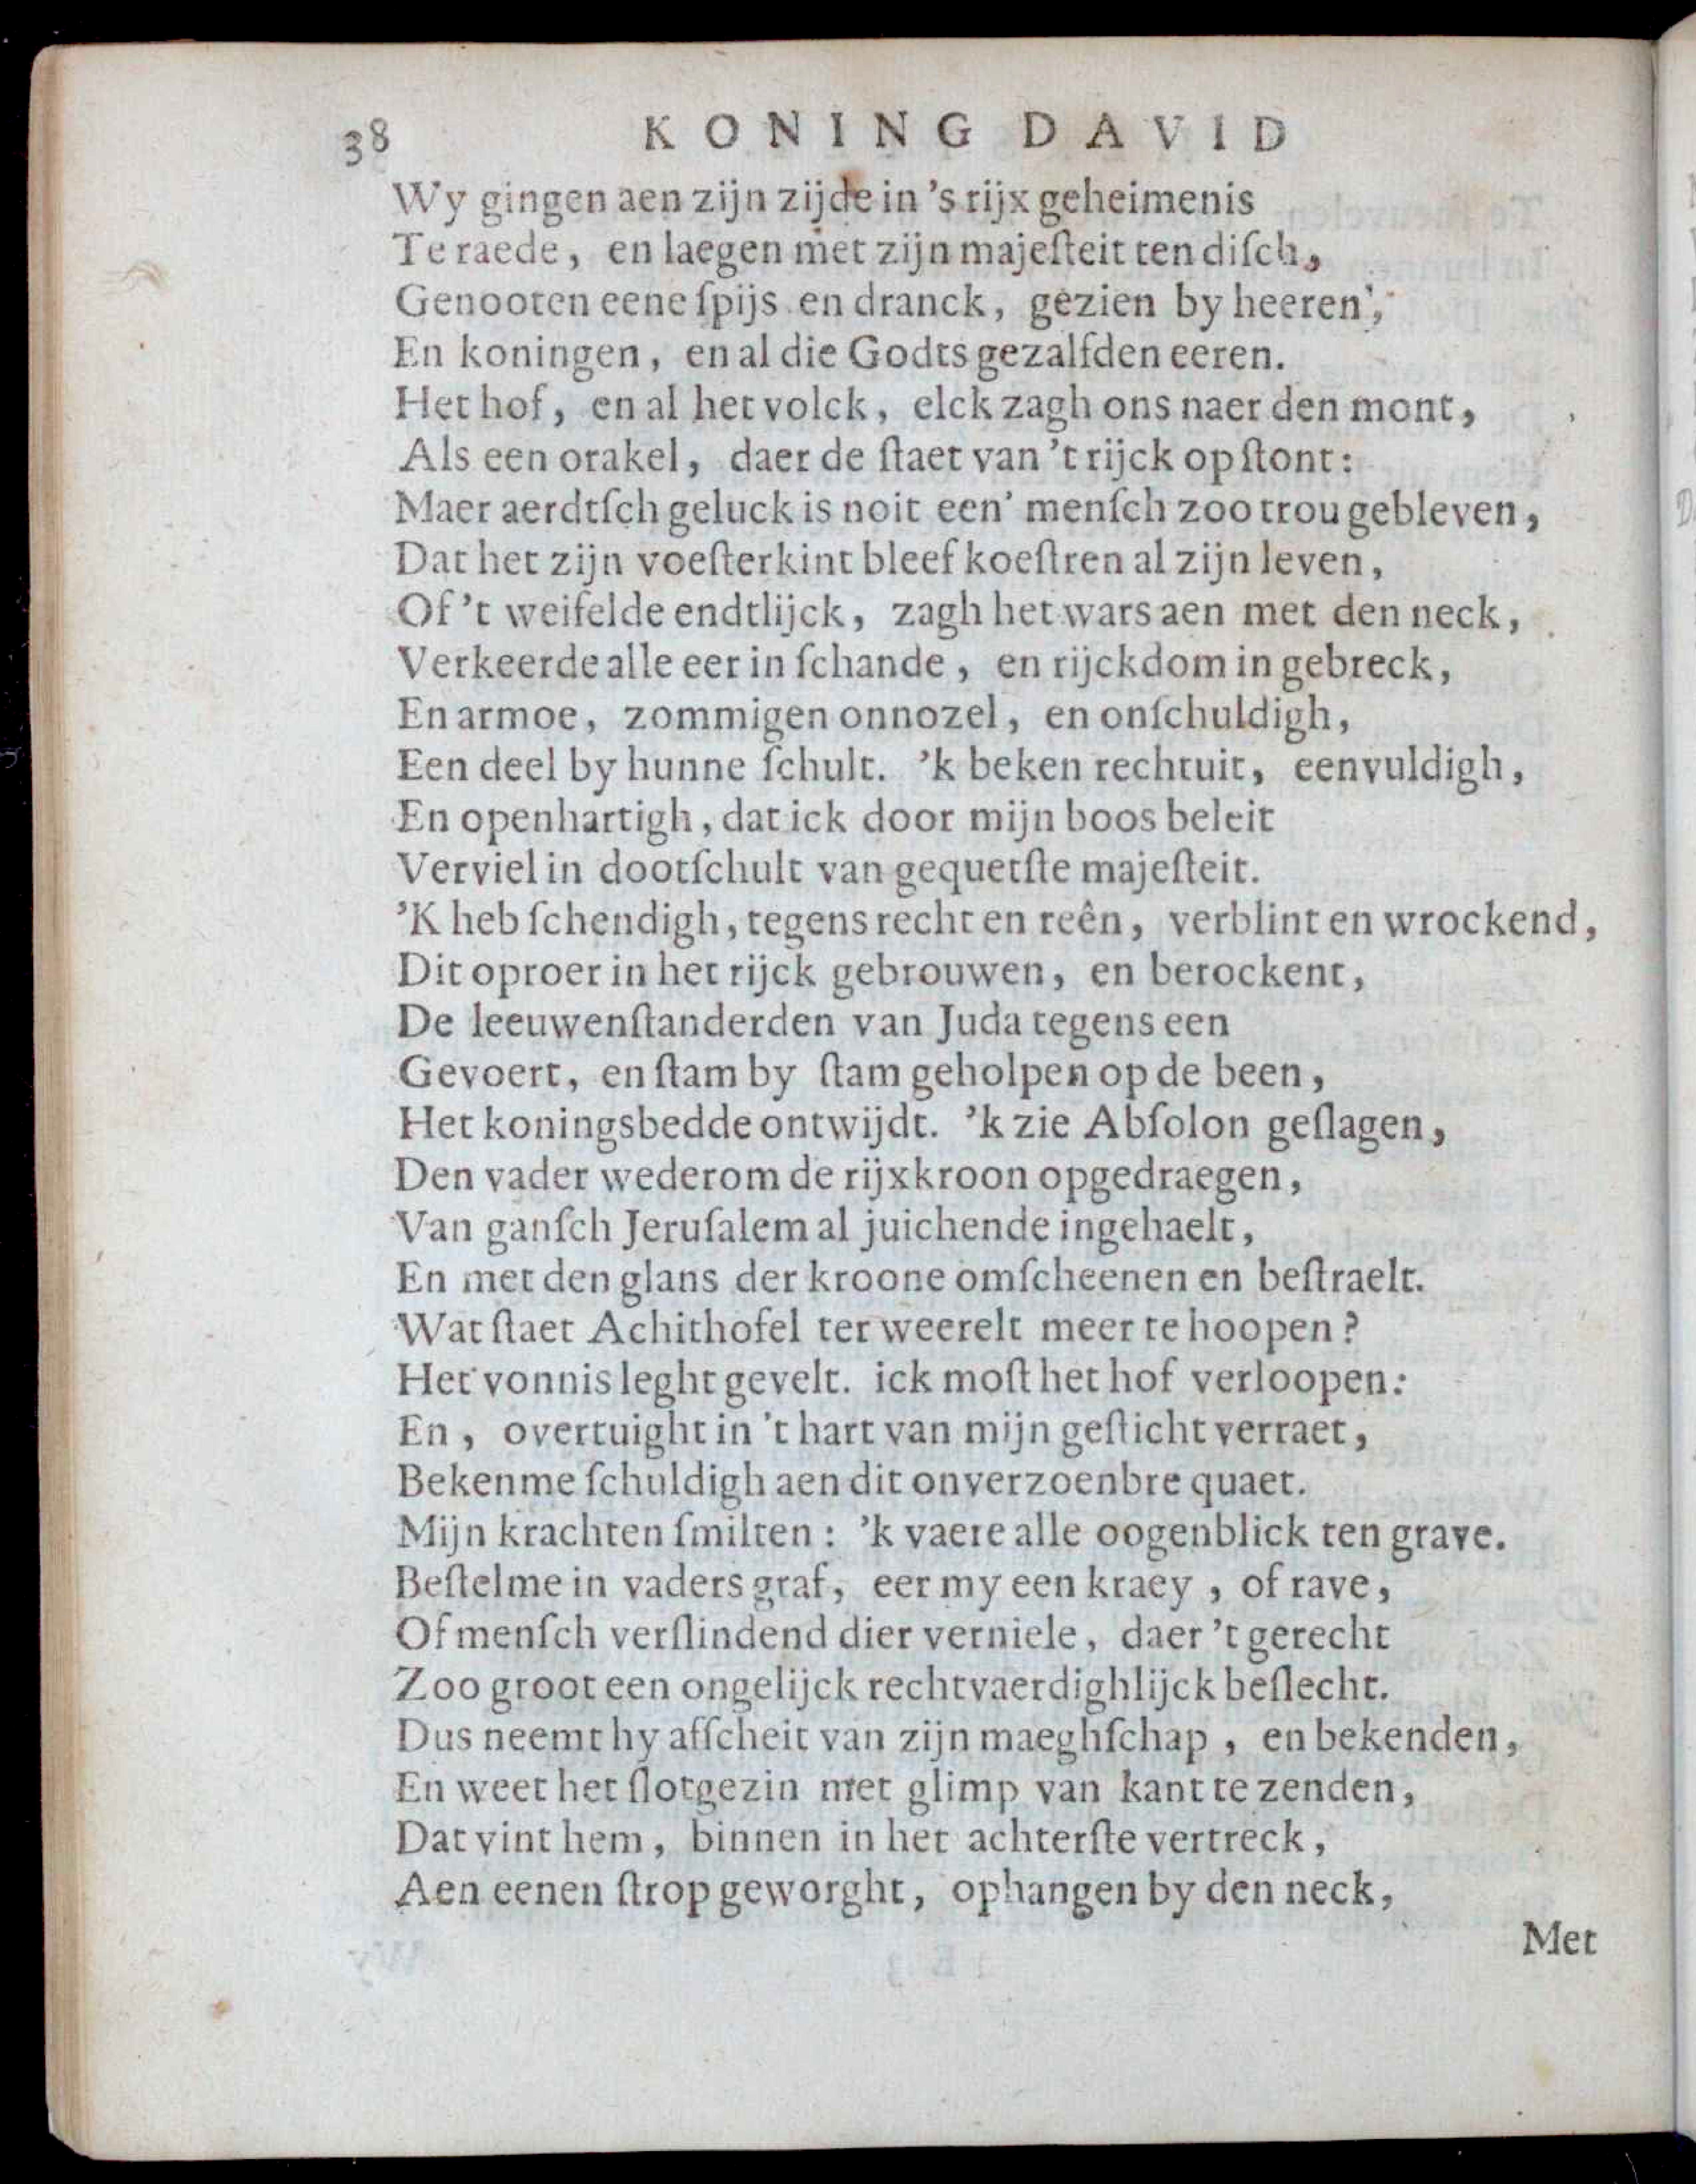 38 KONING DAVID
Wy gingen aen zijn zijde in 's rijx geheimenis
Te raede, en laegen met zijn majeſteit ten diſch,
Genooten eene ſpijs en dranck, gezien by heeren',
En koningen, en al die Godts gezalfden eeren.
Het hof, en al het volck, elck zagh ons naer den mont,
Als een orakel, daer de ſtaet van 't rijck op ſtont:
Maer aerdtſch geluck is noit een' menſch zoo trou gebleven,
Dat het zijn voeſterkint bleef koeſtren al zijn leven,
Of 't weifelde endtlijck, zagh het wars aen met den neck,
Verkeerde alle eer in ſchande, en rijckdom in gebreck,
En armoe, zommigen onnozel, en onſchuldigh,
Een deel by hunne ſchult. 'k beken rechtuit, eenvuldigh,
En openhartigh, dat ick door mijn boos beleit
Verviel in dootſchult van gequetſte majeſteit.
'K heb ſchendigh, tegens recht en reên, verblint en wrockend,
Dit oproer in het rijck gebrouwen, en berockent,
De leeuwenſtanderden van Juda tegens een
Gevoert, en ſtam by ſtam geholpen op de been,
Het koningsbedde ontwijdt. 'k zie Abſolon geſlagen,
Den vader wederom de rijxkroon opgedraegen,
Van ganſch Jeruſalem al juichende ingehaelt,
En met den glans der kroone omſcheenen en beſtraelt.
Wat ſtaet Achithofel ter weerelt meer te hoopen?
Het vonnis leght gevelt. ick moſt het hof verloopen:
En, overtuight in 't hart van mijn geſticht verraet,
Beken me ſchuldigh aen dit onverzoenbre quaet.
Mijn krachten ſmilten: 'k vaere alle oogenblick ten grave.
Beſtel me in vaders graf, eer my een kraey, of rave,
Of menſch verſlindend dier verniele, daer 't gerecht
Zoo groot een ongelijck rechtvaerdighlijck beſlecht.
Dus neemt hy afſcheit van zijn maeghſchap, en bekenden,
En weet het ſlotgezin met glimp van kant te zenden,
Dat vint hem, binnen in het achterſte vertreck,
Aen eenen ſtrop geworght, ophangen by den neck,
Met